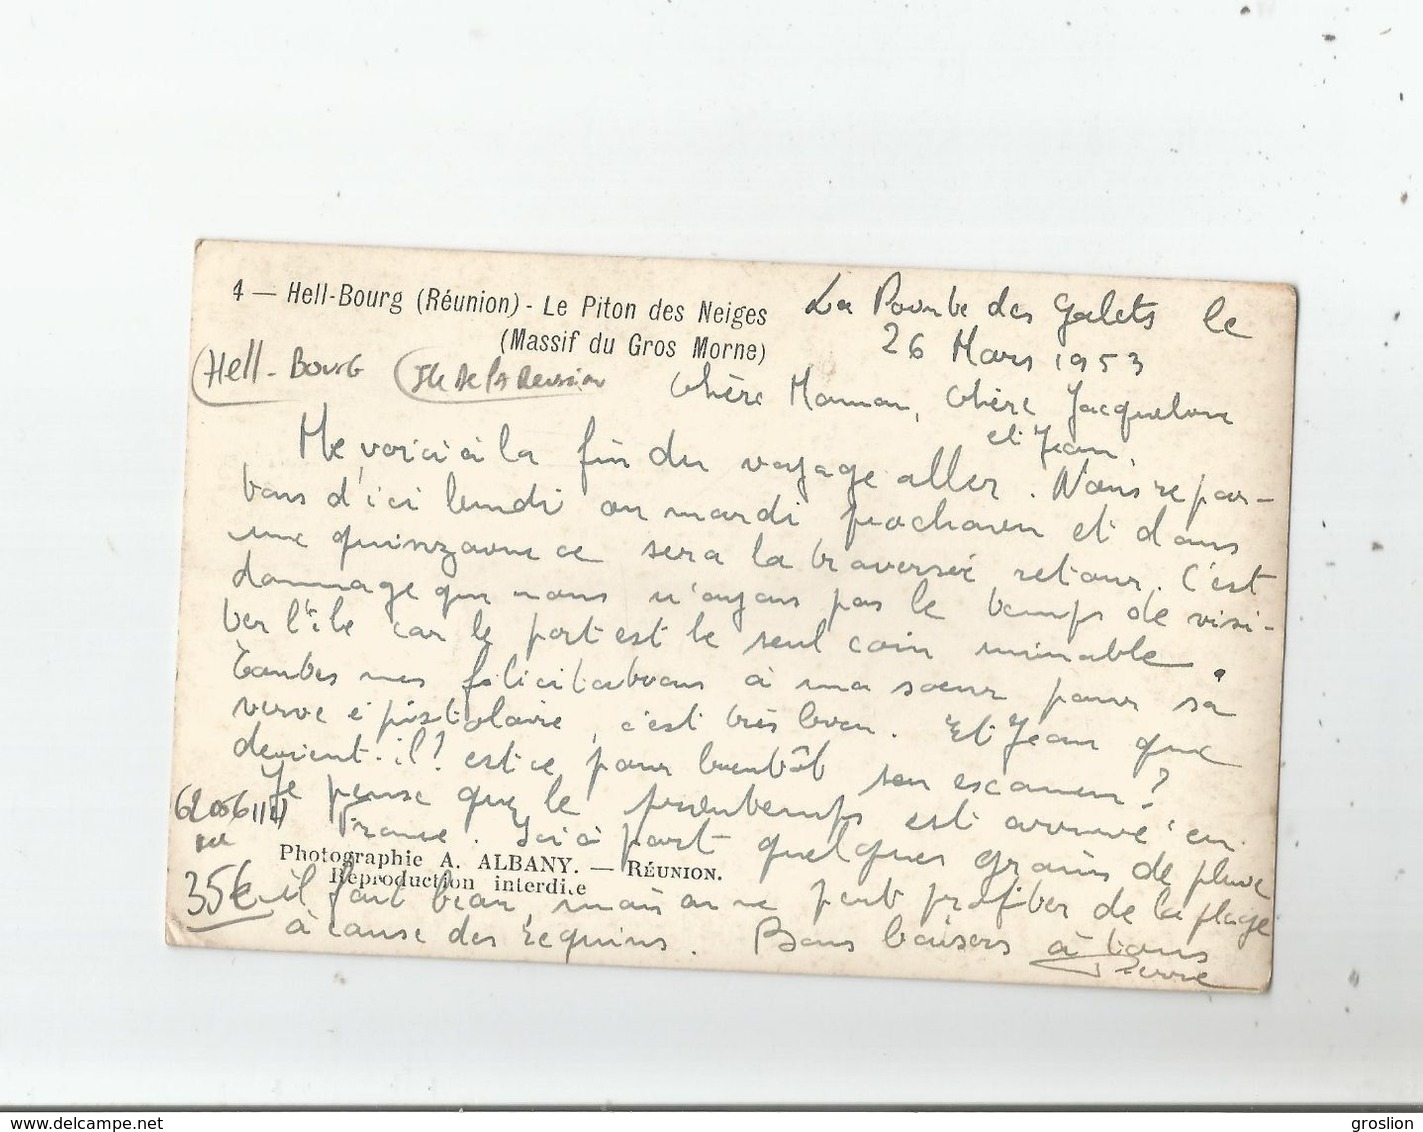 4 — Hell-Bourg (Réunion) - Le Piton des Neiges
(Massif du Gros Morne)
Hell-Bourg
Ile de la Reunion
La Pointe des Galets le
26 Mars 1953
Chère Maman, Chère Jacqueline
et Jean
Me voici à la fin du voyage aller. Nous repar-
tons d'ici lundi ou mardi prochain et dans
une quinzaine ce sera la traversée retour. C'est
dommage que nous n'ayons pas le temps de visi-
ter l'île car le port est le seul coin minable.
Toutes mes félicitations à ma sœur pour sa
verve épistolaire, c'est très bien. Et Jean que
devient-il? est ce pour bientôt son examen?
Je pense que le printemps est arrivé en
France. Ici à part quelques grains de pluie
il fait beau, mais on ne peut profiter de la plage
à cause des requins. Bons baisers à tous
Pierre
Photographie A. ALBANY. — RÉUNION.
Reproduction interdite
35€
www.delcampe.net
groslion